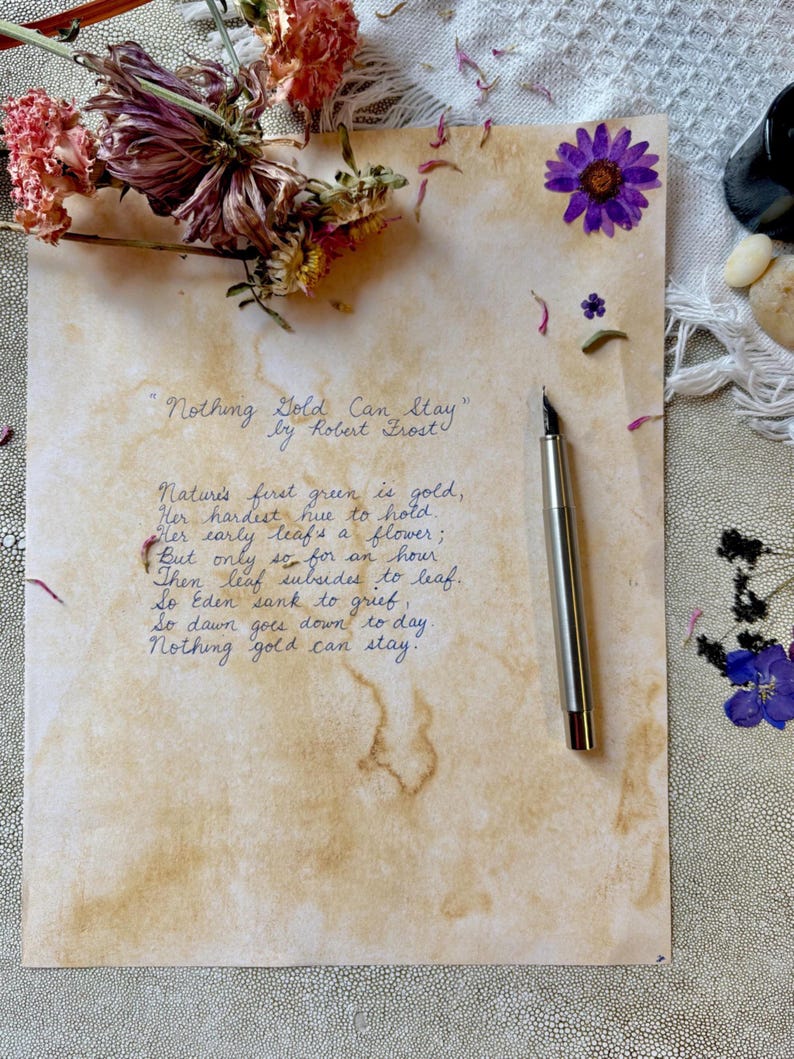 "Nothing Gold Can Stay"
by Robert Frost
Nature's first green is gold,
Her hardest hue to hold.
Her early leaf's a flower;
But only so for an hour
Then leaf subsides to leaf.
So Eden sank to grief,
So dawn goes down to day.
Nothing gold can stay.